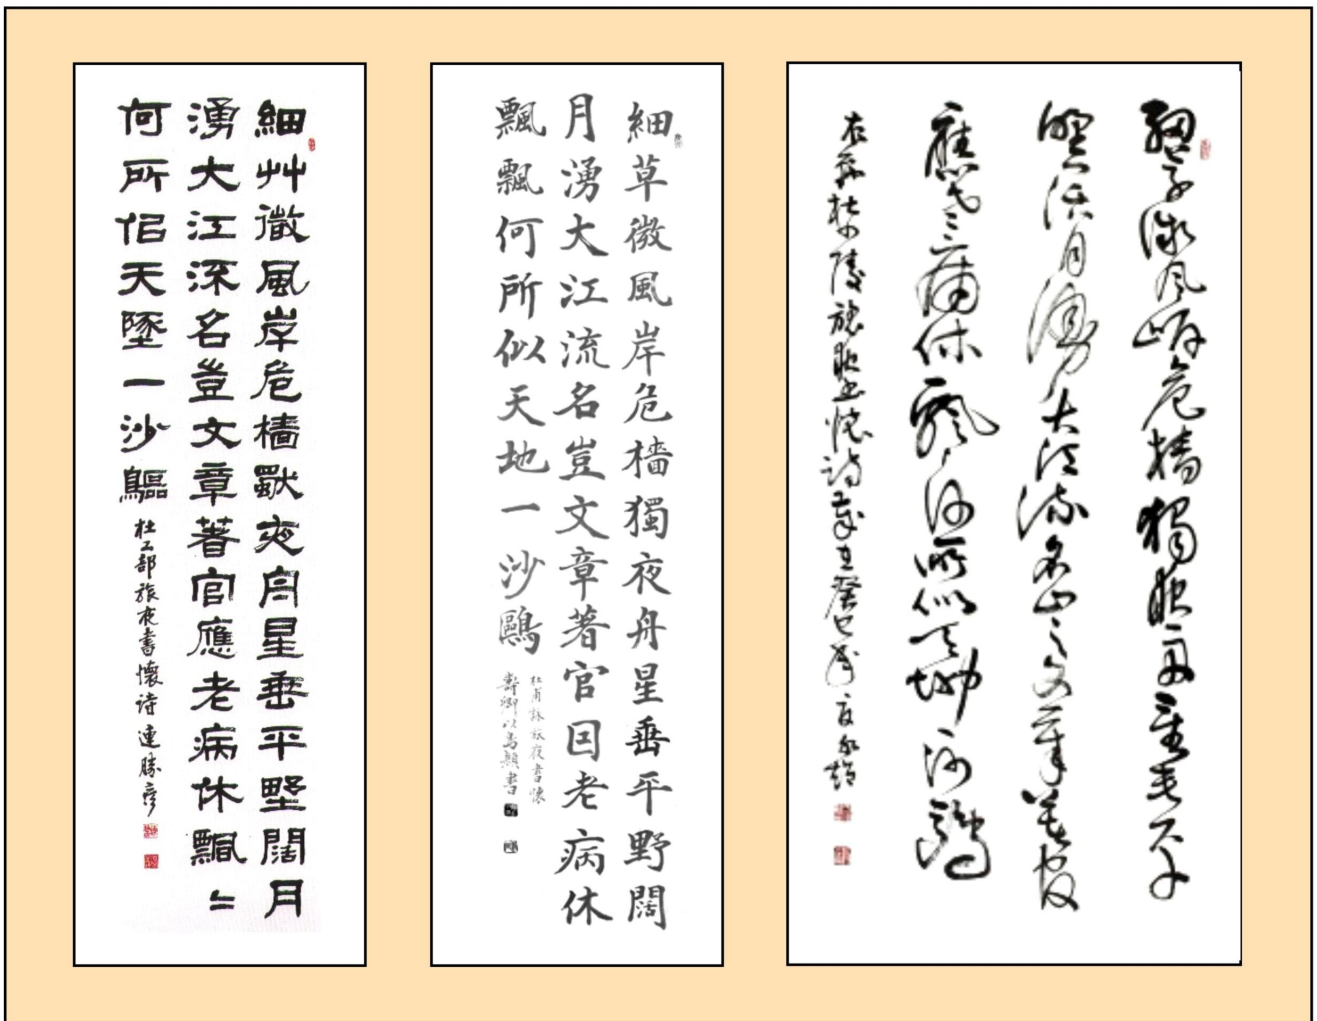 細艸微風岸危檣獨夜舟星垂平墅闊月
湧大江流名豈文章著官應老病休飄〻
何所佀天墬一沙鷗
杜工部旅夜書懷诗連勝彥
細草微風岸危檣獨夜舟星垂平野闊
月湧大江流名豈文章著官因老病休
飄飄何所似天地一沙鷗
杜甫詠旅夜書懷
壽卿 書
細草微風岸危檣獨夜舟星垂平
野闊月湧大江流名豈文章著官
應老病休飄〻何所似天地一沙鷗
杜少陵旅夜書懷詩 癸巳